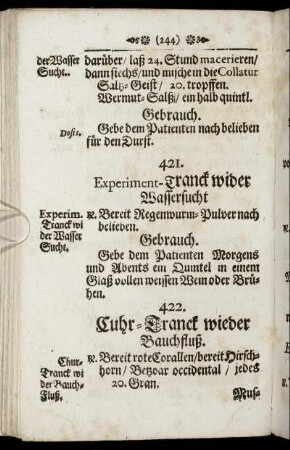 (244)
der Wasser
Sucht.
darüber/ laß 24. Stund macerieren/
dann siechs/ und mische in die Collatur
Saltz-Geist / 20. tropffen.
Wermut-Saltz/ ein halb quintl.
Gebrauch.
Dosis.
Gebe dem Patienten nach belieben
für den Durst.
421.
Experiment-Tranck wider
Wassersucht
Experim.
Tranck wi
der Wasser
Sucht.
℞. Bereit Regenwurm-Pulver nach
belieben.
Gebrauch.
Gebe dem Patienten Morgens
und Abents ein Quintel in einem
Glaß vollen weissen Wein oder Brü-
hen.
422.
Cuhr-Tranck wieder
Bauchfluß.
Chur-
Tranck wi
der Bauch-
Fluß.
℞. Bereit rote Corallen/ bereit Hirsch-
horn/ Bezoar occidental / jedes
20. Gran.
Mus-